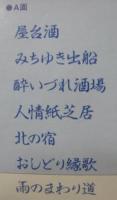 ●A面
屋台酒
みちゆき出船
酔いづれ酒場
人情紙芝居
北の宿
おしどり縁歌
雨のまわり道